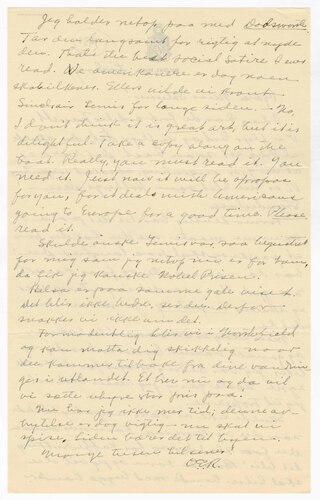 Jeg holder netop paa med Dodsworth.
Tar den langsomt for rigtig at nyde
den. That's the best social satire I ever
read. De amerikanere er dog noen
skabilkener. Ellers vilde vi kronet
Sinclair Lewis for lenge siden. No,
I don't think it is great art, but it is
delightful. Take a copy along on the
boat. Really, you must read it. You
need it. Just now it will be apropos
for you, for it deals with Americans
going to Europe for a good time. Please
read it.
Skulde ønske Lewis var saa begeistret
for mig som jeg netop nu er for ham,
da fik jeg kanske Nobel Prisen.
Helsa er paa samme gale viset.
Det blir ikke bedre, ser du. Derfor
snakker vi ikke om det.
Formodentlig blir vi i Northfield
og kan motta dig skikkelig naar
du kommer tilbake fra dine vandrin-
ger i utlandet. Et brev nu og da vil
vi sætte uhyre stor pris paa.
Nu har jeg ikke mer tid; denne av-
brytelse er dog vigtig — nu skal vi
spise. Siden bærer det til byen.
Mange hilsen til
O.E.R.